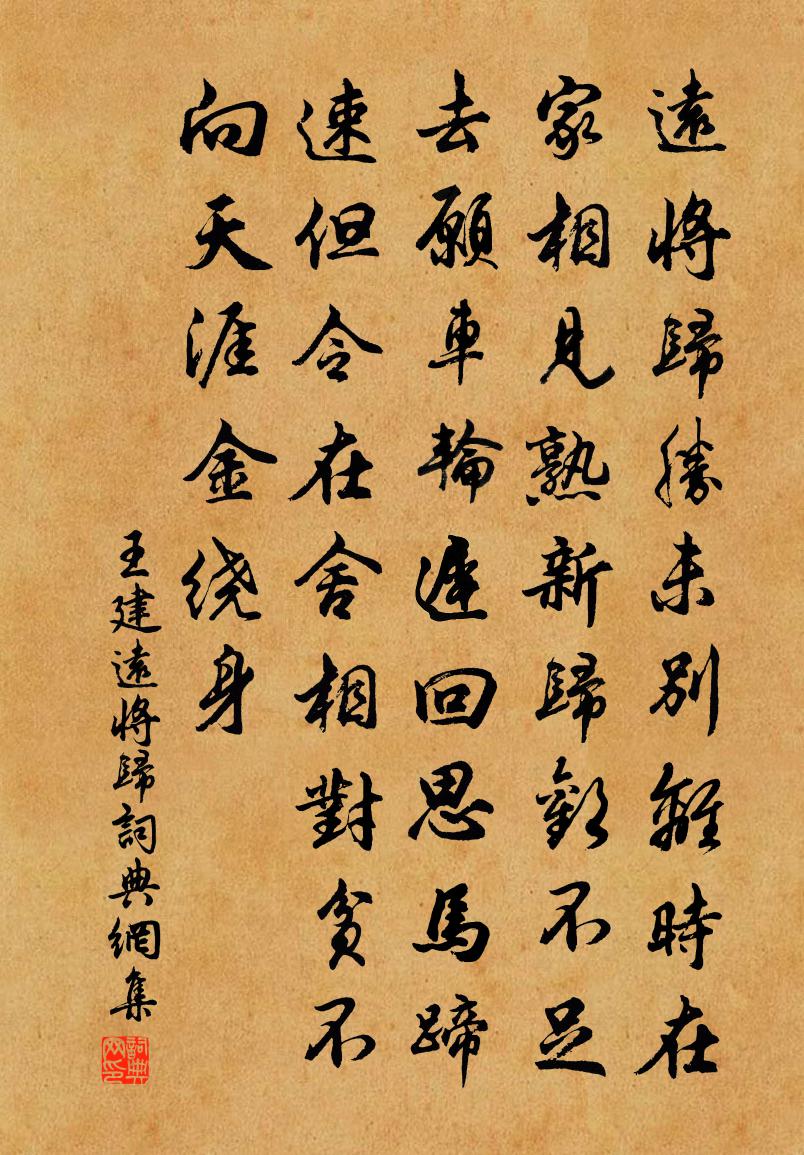 遠将歸勝未别離時在
家相見熟新歸歡不足
去願車輪遲回思馬蹄
速但令在舍相對貧不
向天涯金绕身
王建遠将歸詞典網集
詞典网印